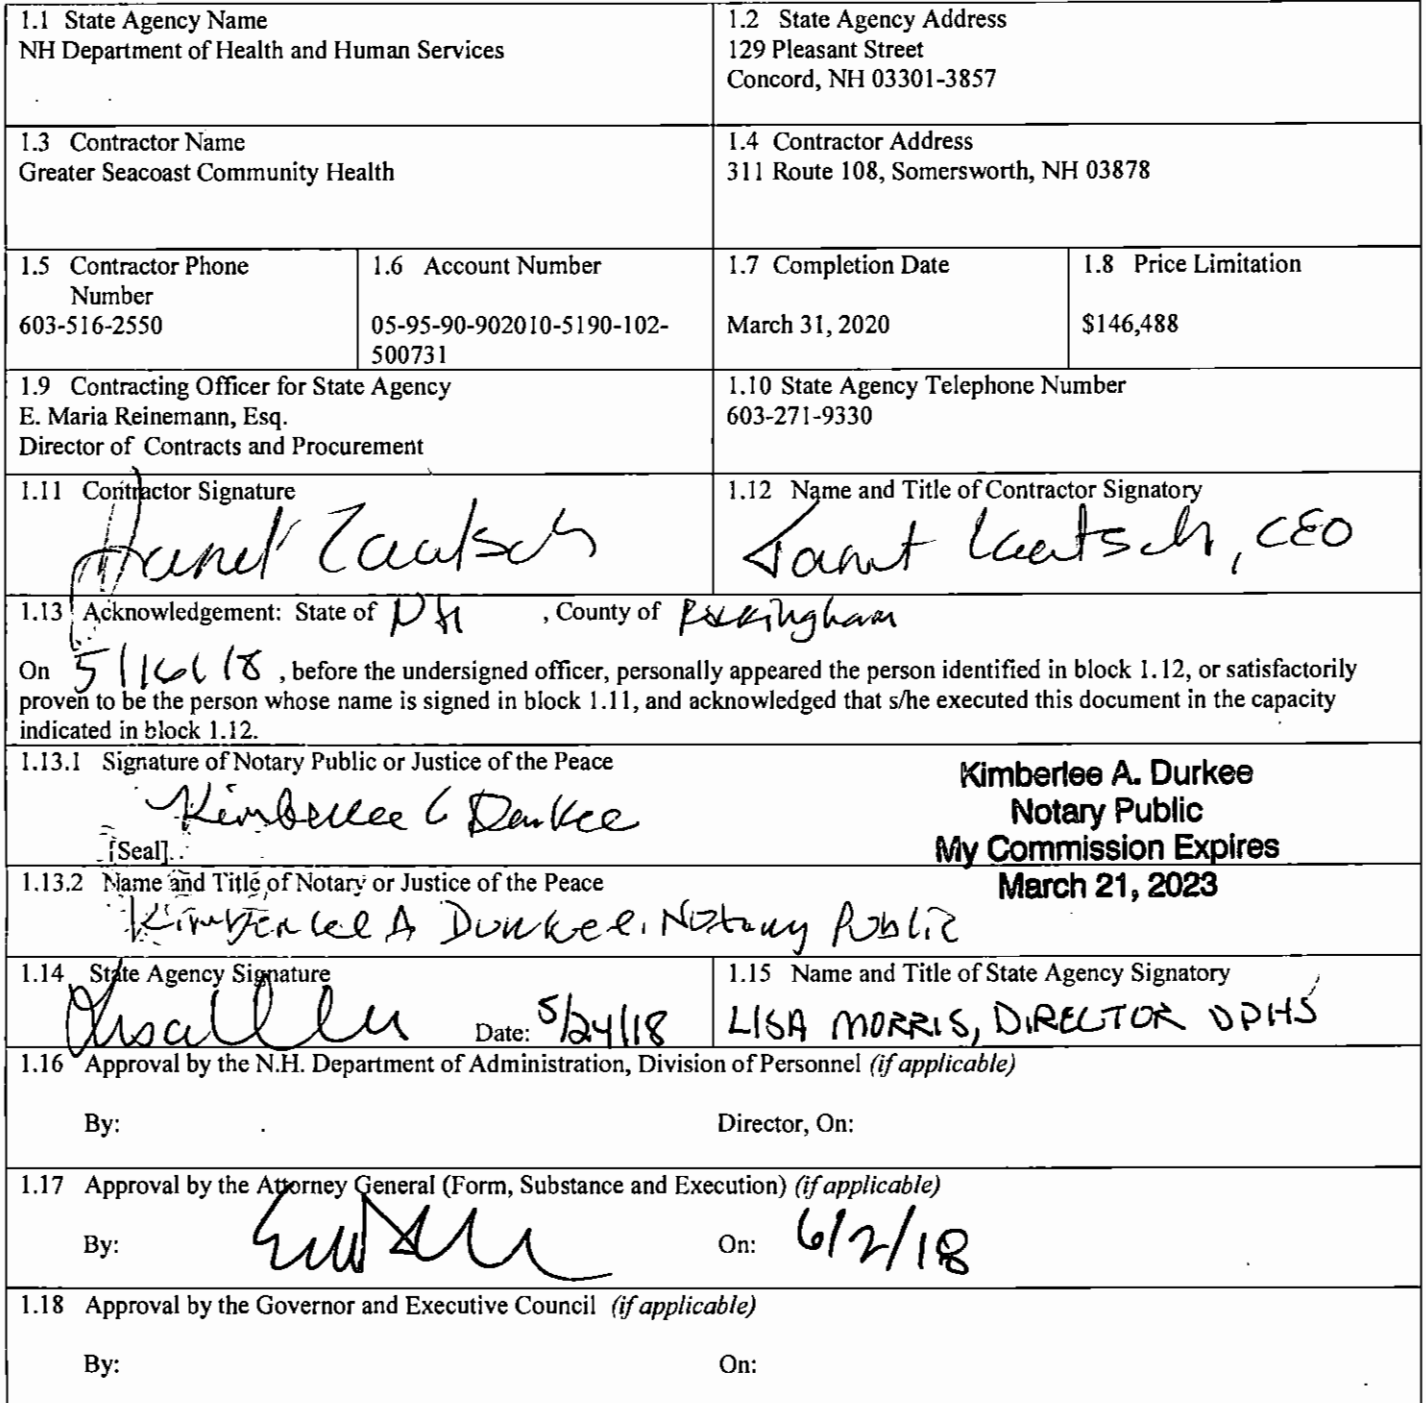 1.1 State Agency Name
NH Department of Health and Human Services
1.2 State Agency Address
129 Pleasant Street
Concord, NH 03301-3857
1.3 Contractor Name
Greater Seacoast Community Health
1.4 Contractor Address
311 Route 108, Somersworth, NH 03878
1.5 Contractor Phone
Number
603-516-2550
1.6 Account Number
05-95-90-902010-5190-102-
500731
1.7 Completion Date
March 31, 2020
1.8 Price Limitation
$146,488
1.9 Contracting Officer for State Agency
E. Maria Reinemann, Esq.
Director of Contracts and Procurement
1.10 State Agency Telephone Number
603-271-9330
1.11 Contractor Signature
Janet Laatsch
1.12 Name and Title of Contractor Signatory
Janet Laatsch, CEO
1.13 Acknowledgement: State of NH , County of Rockingham
On 5/16/18 , before the undersigned officer, personally appeared the person identified in block 1.12, or satisfactorily
proven to be the person whose name is signed in block 1.11, and acknowledged that s/he executed this document in the capacity
indicated in block 1.12.
1.13.1 Signature of Notary Public or Justice of the Peace
Kimberlee A Durkee
[Seal]
Kimberlee A. Durkee
Notary Public
My Commission Expires
March 21, 2023
1.13.2 Name and Title of Notary or Justice of the Peace
Kimberlee A Durkee, Notary Public
1.14 State Agency Signature
Date: 5/24/18
1.15 Name and Title of State Agency Signatory
LISA MORRIS, DIRECTOR DPHS
1.16 Approval by the N.H. Department of Administration, Division of Personnel (if applicable)
By:
Director, On:
1.17 Approval by the Attorney General (Form, Substance and Execution) (if applicable)
By:
On: 6/2/18
1.18 Approval by the Governor and Executive Council (if applicable)
By:
On: